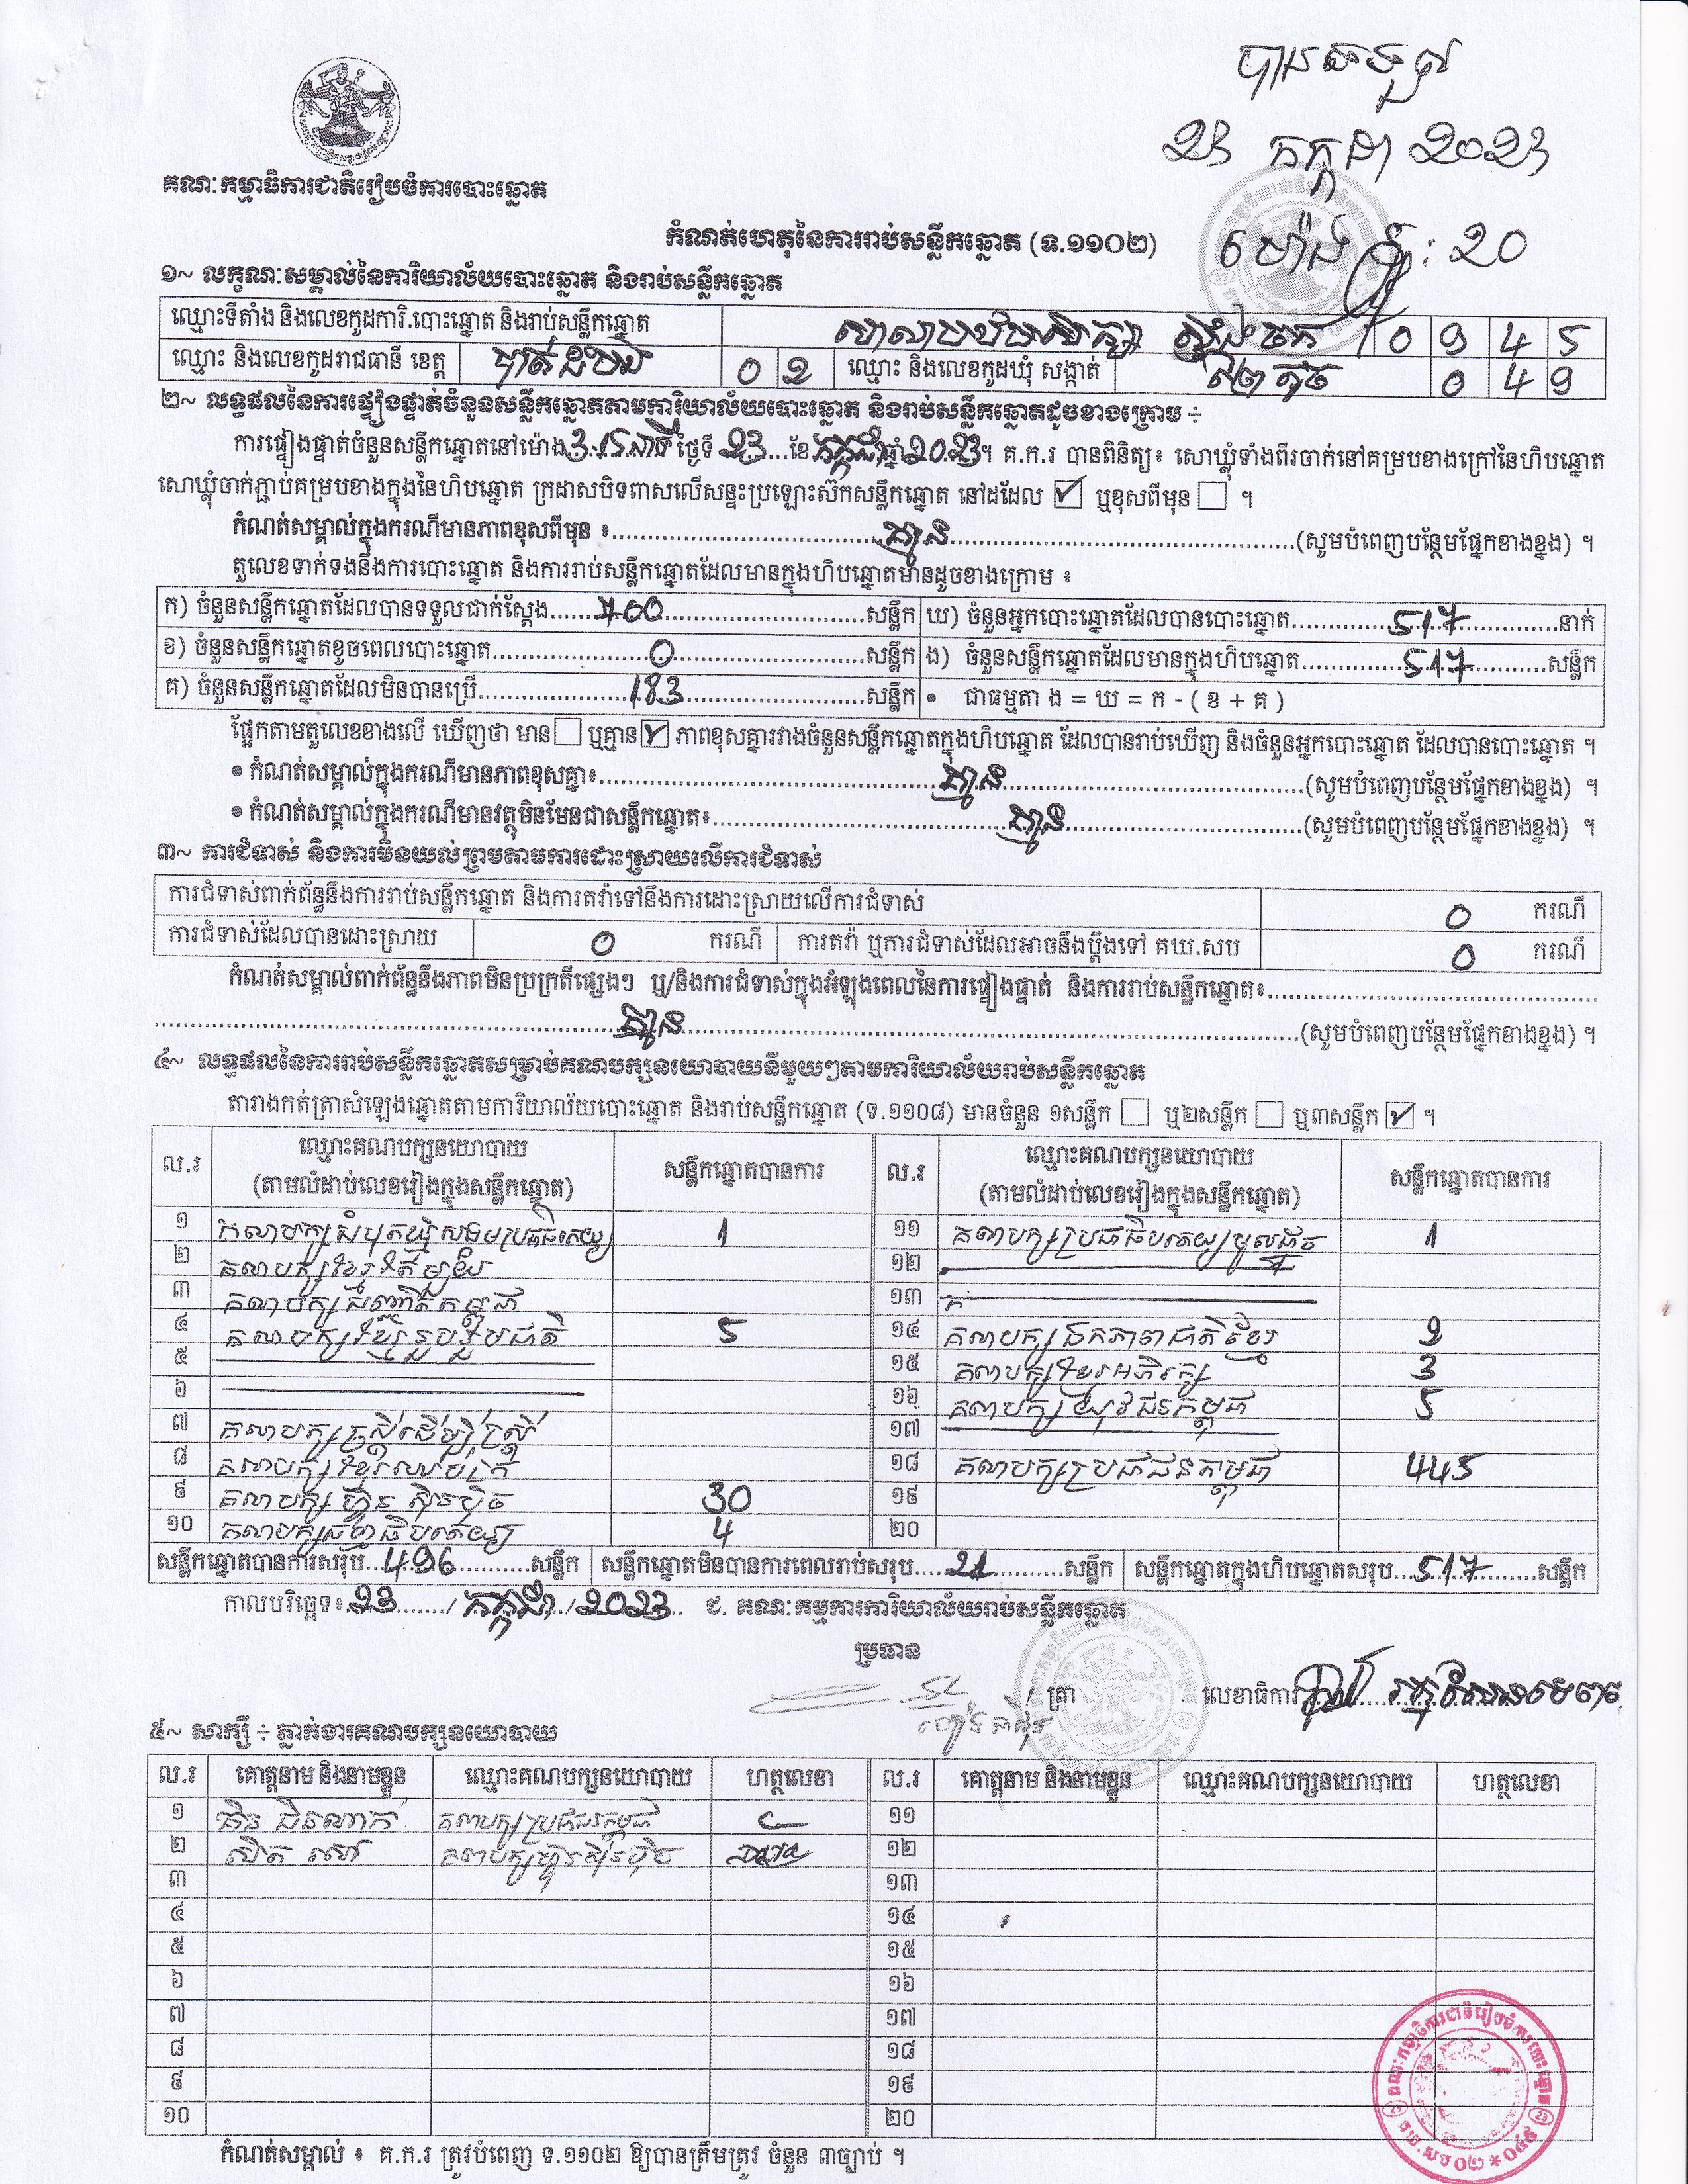 បានទទួល
23 កក្កដា 2023
គណៈកម្មាធិការជាតិរៀបចំការបោះឆ្នោត
កំណត់ហេតុនៃការរាប់សន្លឹកឆ្នោត (ទ.១១០២)
ម៉ោង : 20
១~ លក្ខណៈសម្គាល់នៃការិយាល័យបោះឆ្នោត និងរាប់សន្លឹកឆ្នោត
ឈ្មោះទីតាំង និងលេខកូដការិ.បោះឆ្នោត និងរាប់សន្លឹកឆ្នោត សាលាបឋមសិក្សា ស្ទឹងចក 0 9 4 5
ឈ្មោះ និងលេខកូដរាជធានី ខេត្ត បាត់ដំបង 0 2 ឈ្មោះ និងលេខកូដឃុំ សង្កាត់ តូច 0 4 9
២~ លទ្ធផលនៃការផ្ទៀងផ្ទាត់ចំនួនសន្លឹកឆ្នោតតាមការិយាល័យបោះឆ្នោត និងរាប់សន្លឹកឆ្នោតដូចខាងក្រោម ÷
ការផ្ទៀងផ្ទាត់ចំនួនសន្លឹកឆ្នោតនៅម៉ោង 3:15 នាទី ថ្ងៃទី 23 ខែ កក្កដា ឆ្នាំ 2023។ គ.ក.រ បានពិនិត្យ៖ សោឃ្លុំទាំងពីរចាក់នៅគម្របខាងក្រៅនៃហិបឆ្នោត
សោឃ្លុំចាក់ភ្ជាប់គម្របខាងក្នុងនៃហិបឆ្នោត ក្រដាសបិទពាសលើសន្ទះប្រឡោះស៊កសន្លឹកឆ្នោត នៅដដែល ☑ ឬខុសពីមុន ☐ ។
កំណត់សម្គាល់ក្នុងករណីមានភាពខុសពីមុន ៖ គ្មាន (សូមបំពេញបន្ថែមផ្នែកខាងខ្នង) ។
តួលេខទាក់ទងនឹងការបោះឆ្នោត និងការរាប់សន្លឹកឆ្នោតដែលមានក្នុងហិបឆ្នោតមានដូចខាងក្រោម ៖
ក) ចំនួនសន្លឹកឆ្នោតដែលបានទទួលជាក់ស្តែង 700 សន្លឹក ឃ) ចំនួនអ្នកបោះឆ្នោតដែលបានបោះឆ្នោត 517 នាក់
ខ) ចំនួនសន្លឹកឆ្នោតខូចពេលបោះឆ្នោត 0 សន្លឹក ង) ចំនួនសន្លឹកឆ្នោតដែលមានក្នុងហិបឆ្នោត 517 សន្លឹក
គ) ចំនួនសន្លឹកឆ្នោតដែលមិនបានប្រើ 183 សន្លឹក • ជាធម្មតា ង = ឃ = ក - ( ខ + គ )
ផ្អែកតាមតួលេខខាងលើ ឃើញថា មាន ☐ ឬគ្មាន ☑ ភាពខុសគ្នារវាងចំនួនសន្លឹកឆ្នោតក្នុងហិបឆ្នោត ដែលបានរាប់ឃើញ និងចំនួនអ្នកបោះឆ្នោត ដែលបានបោះឆ្នោត ។
• កំណត់សម្គាល់ក្នុងករណីមានភាពខុសគ្នា៖ គ្មាន (សូមបំពេញបន្ថែមផ្នែកខាងខ្នង) ។
• កំណត់សម្គាល់ក្នុងករណីមានវត្ថុមិនមែនជាសន្លឹកឆ្នោត៖ គ្មាន (សូមបំពេញបន្ថែមផ្នែកខាងខ្នង) ។
៣~ ការជំទាស់ និងការមិនយល់ព្រមតាមការដោះស្រាយលើការជំទាស់
ការជំទាស់ពាក់ព័ន្ធនឹងការរាប់សន្លឹកឆ្នោត និងការតវ៉ាទៅនឹងការដោះស្រាយលើការជំទាស់ 0 ករណី
ការជំទាស់ដែលបានដោះស្រាយ 0 ករណី ការតវ៉ា ឬការជំទាស់ដែលអាចនឹងប្តឹងទៅ គឃ.សប 0 ករណី
កំណត់សម្គាល់ពាក់ព័ន្ធនឹងភាពមិនប្រក្រតីផ្សេងៗ ឬ/និងការជំទាស់ក្នុងអំឡុងពេលនៃការផ្ទៀងផ្ទាត់ និងការរាប់សន្លឹកឆ្នោត៖
គ្មាន (សូមបំពេញបន្ថែមផ្នែកខាងខ្នង) ។
៤~ លទ្ធផលនៃការរាប់សន្លឹកឆ្នោតសម្រាប់គណបក្សនយោបាយនីមួយៗតាមការិយាល័យរាប់សន្លឹកឆ្នោត
តារាងកត់ត្រាសំឡេងឆ្នោតតាមការិយាល័យបោះឆ្នោត និងរាប់សន្លឹកឆ្នោត (ទ.១១០៨) មានចំនួន ១សន្លឹក ☐ ឬ២សន្លឹក ☐ ឬ៣សន្លឹក ☑ ។
ល.រ ឈ្មោះគណបក្សនយោបាយ (តាមលំដាប់លេខរៀងក្នុងសន្លឹកឆ្នោត) សន្លឹកឆ្នោតបានការ ល.រ ឈ្មោះគណបក្សនយោបាយ (តាមលំដាប់លេខរៀងក្នុងសន្លឹកឆ្នោត) សន្លឹកឆ្នោតបានការ
១ គណបក្សសំបុកឃ្មុំសង្គមប្រជាធិបតេយ្យ 1 ១១ គណបក្សប្រជាធិបតេយ្យមូលដ្ឋាន 1
២ គណបក្សខ្មែរតែមួយ ១២
៣ គណបក្សជំនឿជាតិកម្ពុជា ១៣
៤ គណបក្សខ្មែររួបរួមជាតិ 5 ១៤ គណបក្សឯកភាពជាតិខ្មែរ 2
៥ ១៥ គណបក្សខ្មែរអភិរក្ស 3
៦ ១៦ គណបក្សយុវជនកម្ពុជា 5
៧ គណបក្សស្ត្រីដើម្បីស្ត្រី ១៧
៨ គណបក្សខ្មែរឈប់ក្រ ១៨ គណបក្សប្រជាជនកម្ពុជា 445
៩ គណបក្សហ៊្វុនស៊ិនប៉ិច 30 ១៩
១០ គណបក្សធម្មាធិបតេយ្យ 4 ២០
សន្លឹកឆ្នោតបានការសរុប 496 សន្លឹក សន្លឹកឆ្នោតមិនបានការពេលរាប់សរុប 21 សន្លឹក សន្លឹកឆ្នោតក្នុងហិបឆ្នោតសរុប 517 សន្លឹក
កាលបរិច្ឆេទ៖ 23 / កក្កដា / 2023 ជ. គណៈកម្មការការិយាល័យរាប់សន្លឹកឆ្នោត
ប្រធាន
ត្រា លេខាធិការ
៥~ សាក្សី ÷ ភ្នាក់ងារគណបក្សនយោបាយ
ល.រ គោត្តនាម និងនាមខ្លួន ឈ្មោះគណបក្សនយោបាយ ហត្ថលេខា ល.រ គោត្តនាម និងនាមខ្លួន ឈ្មោះគណបក្សនយោបាយ ហត្ថលេខា
១ គណបក្សប្រជាជនកម្ពុជា ១១
២ គណបក្សហ៊្វុនស៊ិនប៉ិច ១២
៣ ១៣
៤ ១៤
៥ ១៥
៦ ១៦
៧ ១៧
៨ ១៨
៩ ១៩
១០ ២០
កំណត់សម្គាល់ ៖ គ.ក.រ ត្រូវបំពេញ ទ.១១០២ ឱ្យបានត្រឹមត្រូវ ចំនួន ៣ច្បាប់ ។